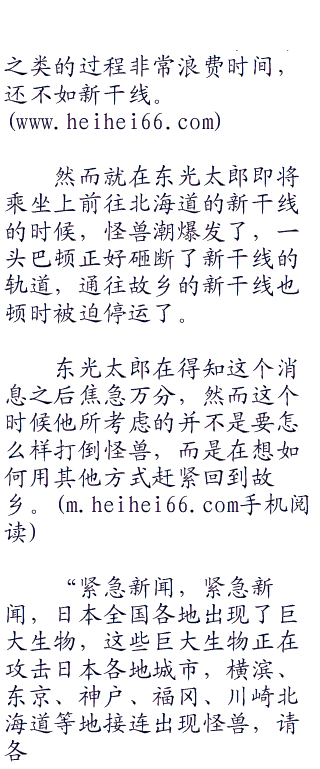 之类的过程非常浪费时间，
还不如新干线。
(www.heihei66.com)
然而就在东光太郎即将
乘坐上前往北海道的新干线
的时候，怪兽潮爆发了，一
头巴顿正好砸断了新干线的
轨道，通往故乡的新干线也
顿时被迫停运了。
东光太郎在得知这个消
息之后焦急万分，然而这个
时候他所考虑的并不是要怎
么样打倒怪兽，而是在想如
何用其他方式赶紧回到故
乡。(m.heihei66.com手机阅
读)
“紧急新闻，紧急新
闻，日本全国各地出现了巨
大生物，这些巨大生物正在
攻击日本各地城市，横滨、
东京、神户、福冈、川崎北
海道等地接连出现怪兽，请
各